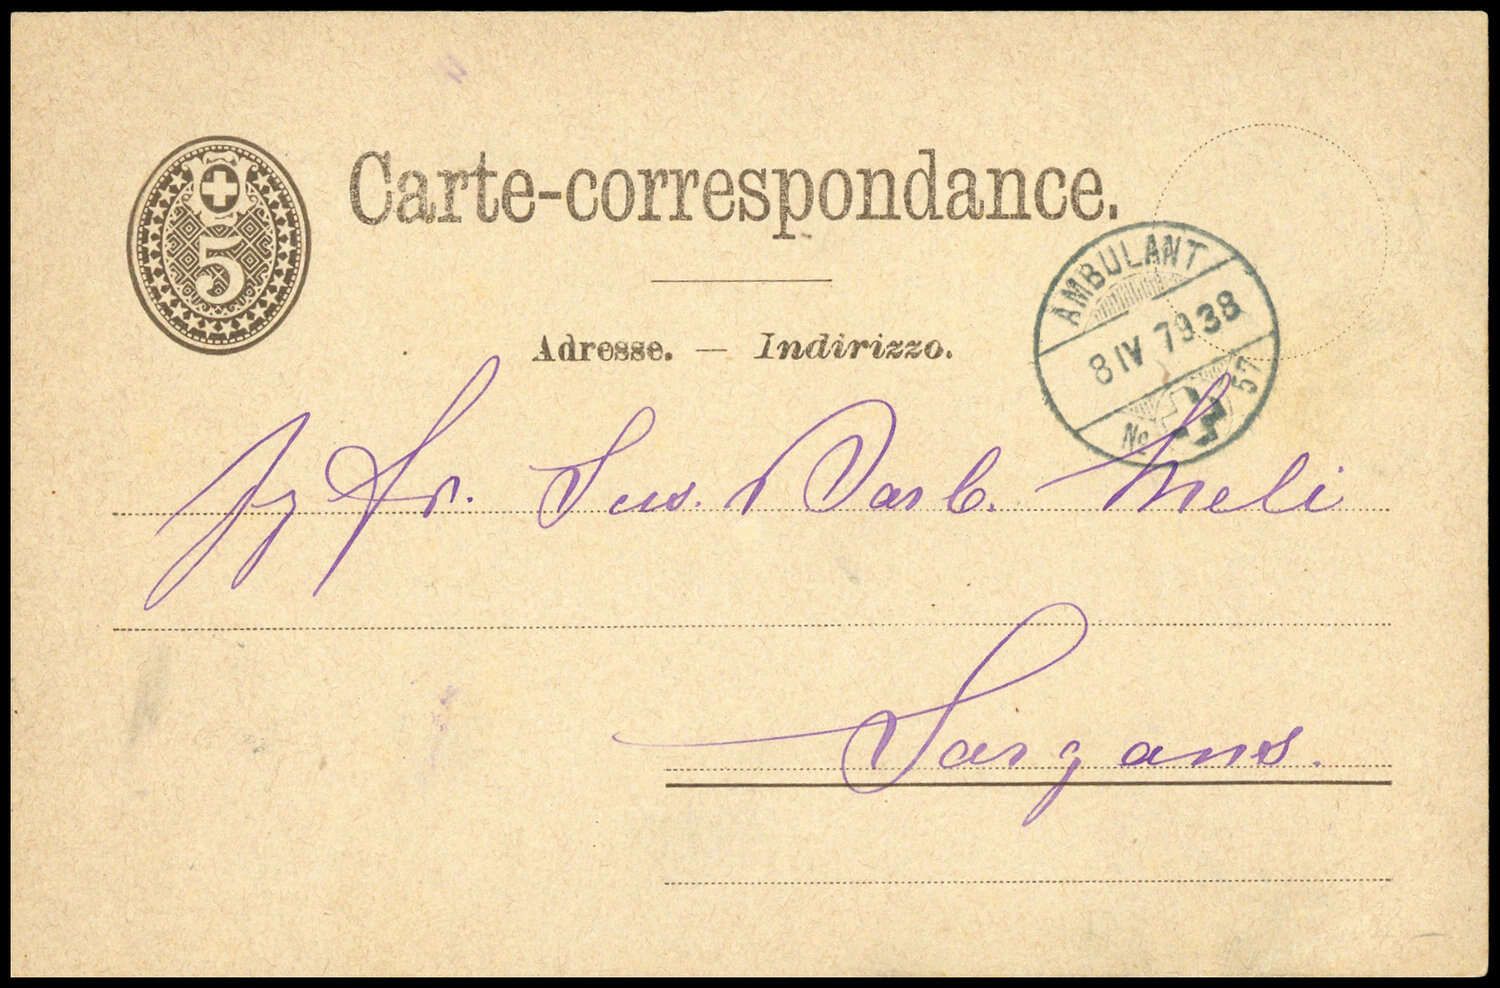 5
Carte-correspondance.
Adresse. — Indirizzo.
AMBULANT
8 IV 79 38
No 57
Fr. Barb. Meli
Sargans.